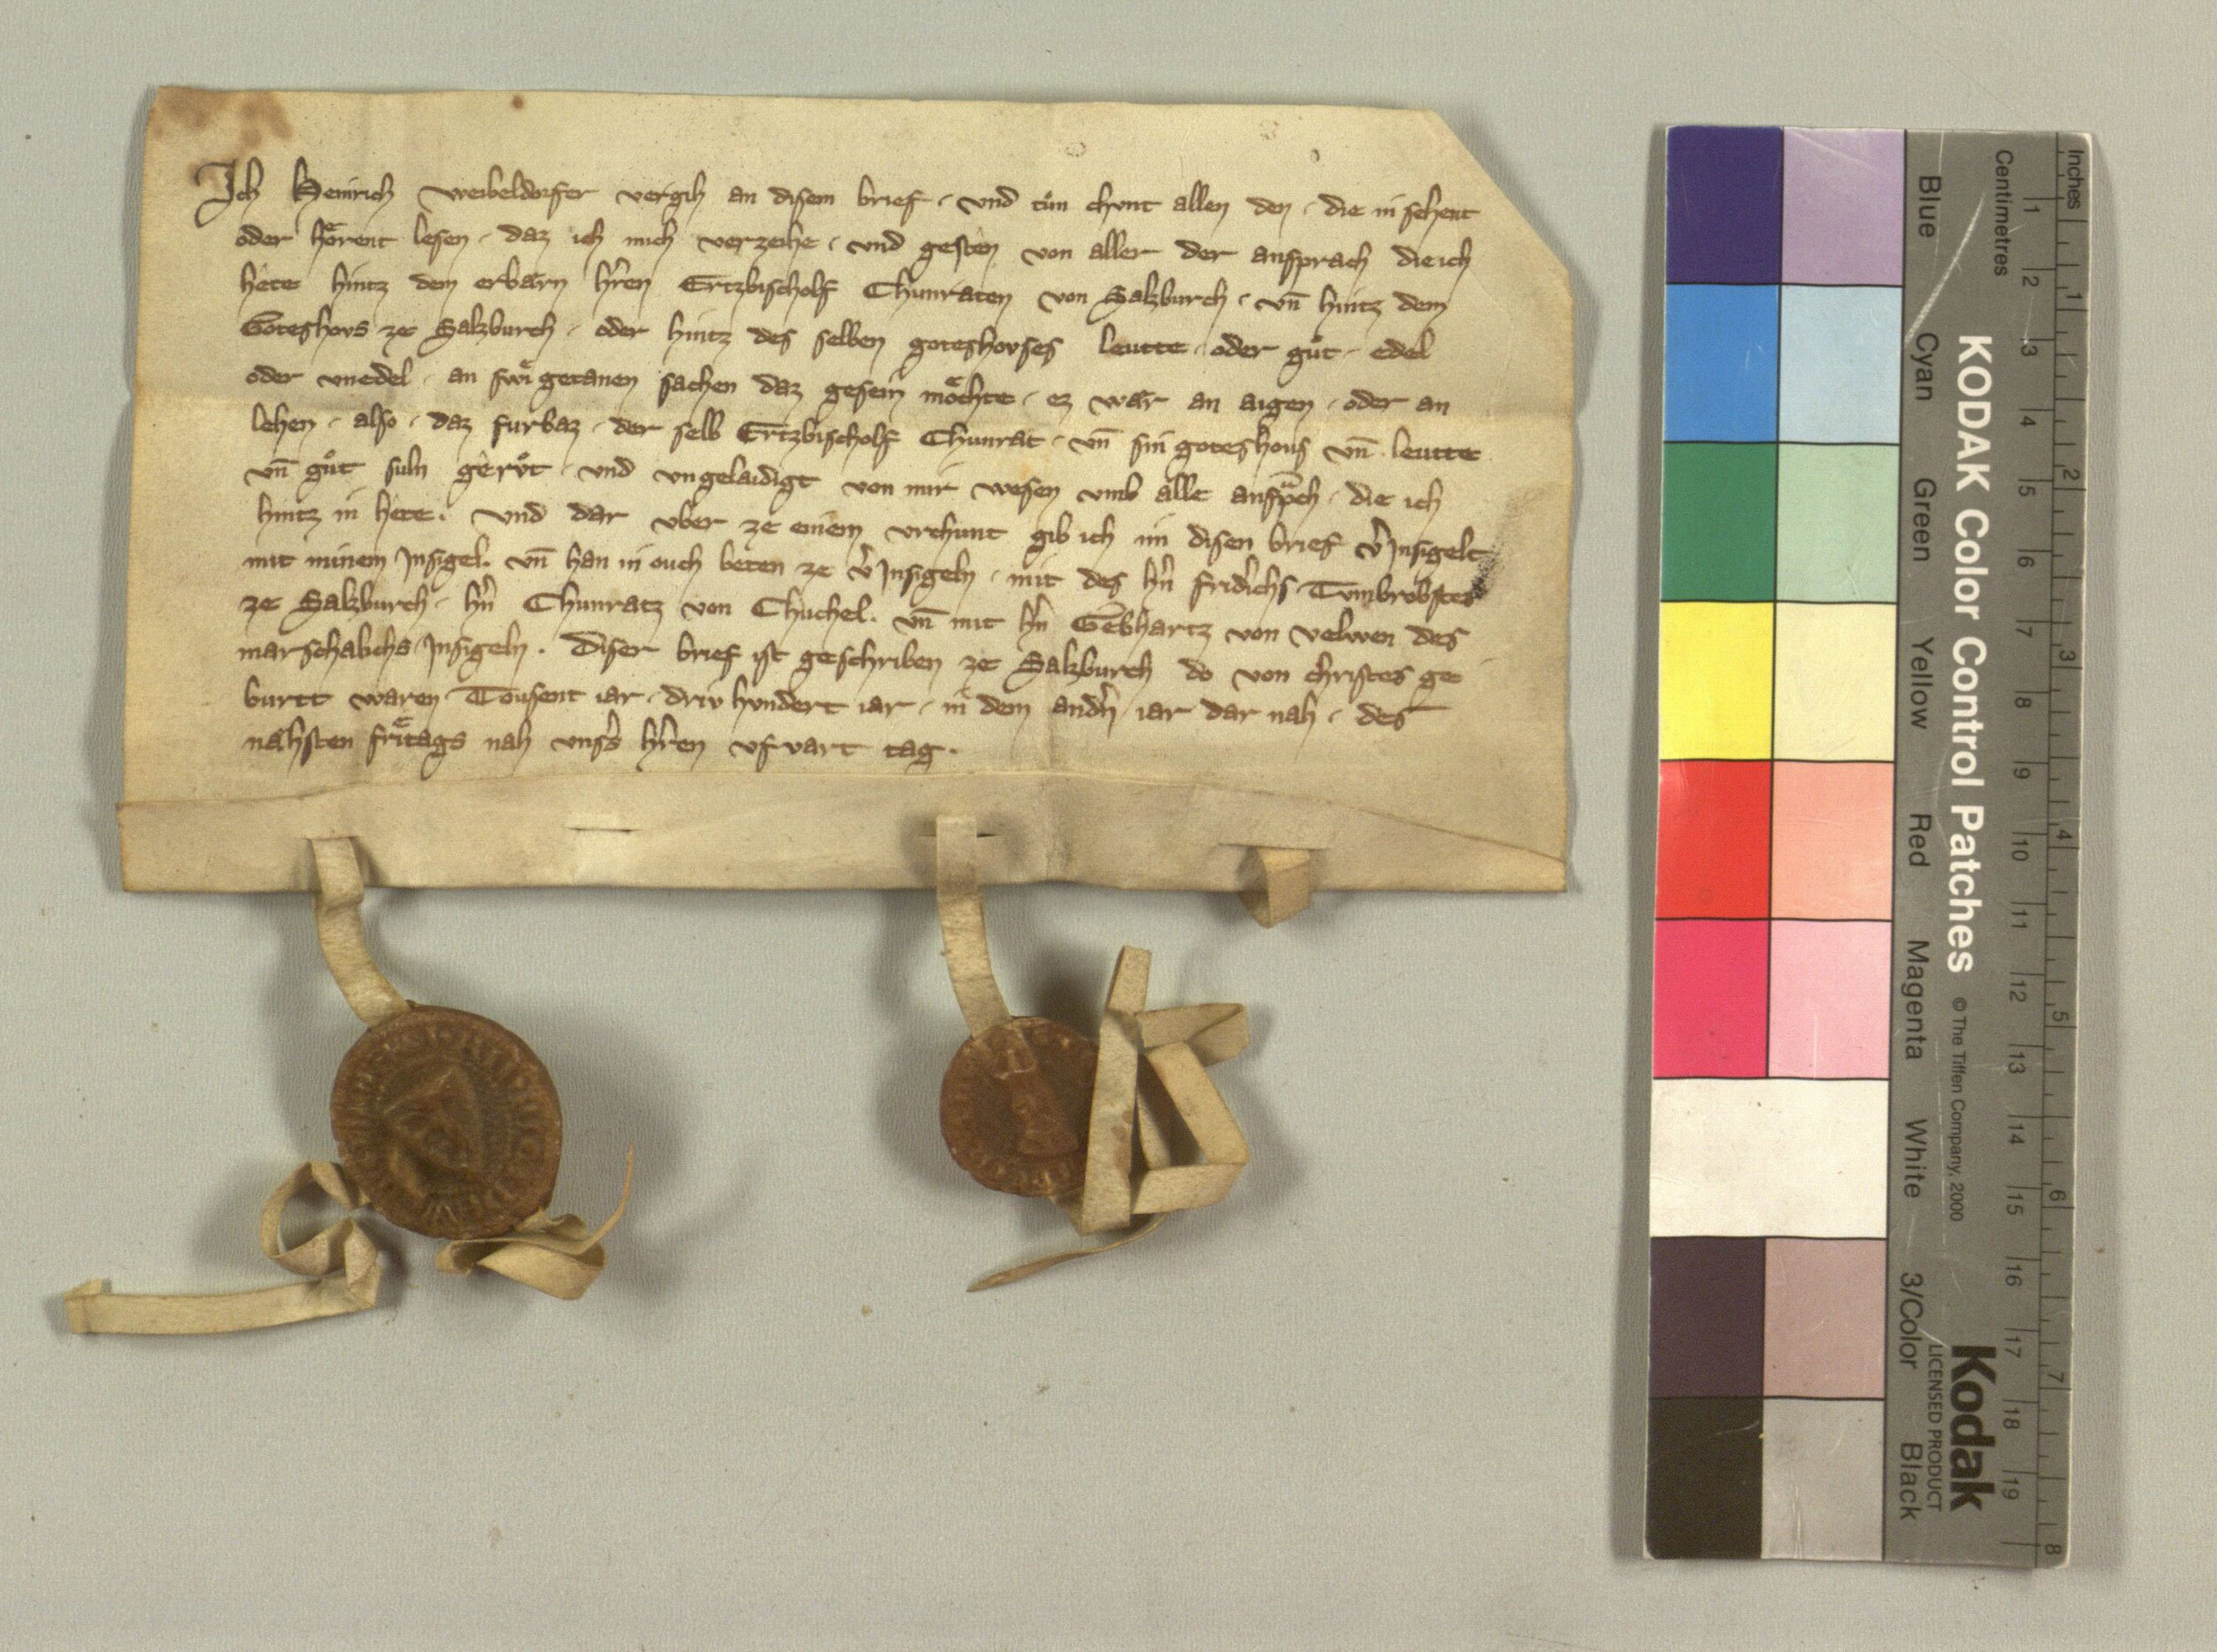 Ich Heinrich Weibeldorfer vergih an disem brief · und tuͦn chunt allen den · die in sehent
oder hoͤrent lesen · daz ich mich verzeihe · und gesten von aller der ansprach die ich
hete hintz dem erbarn hr̄en Ertzbischolf Chunraten von Salzburch · vn̄ hintz dem
Goteshovs ze Salzburch · oder hintz des selben goteshovses leutte · oder guͦt · edel
oder vnedel · an swi getanen sachen daz gesein moͤchte · ez waͤr an aigen · oder an
lehen · also · daz furbaz · der selb Ertzbischolf Chunrat · vn̄ sin goteshous vn̄ leutte
vn̄ guͦt suln gervͦt · und vngelaidigt von mir wesen vmb alle anspͣch · die ich
hintz in hete · Und dar vber ze einem vrchunt gib ich im disen brief v̓Insigelt
mit minem Insigel · vn̄ han in ouch beten ze v̓Insigeln · mit des hn̄ fridichs · Tumbrobstes
ze Salzburch · hn̄ Chunratz von Chuchel · vn̄ mit hn̄ Gebhartz von velwen des
marschalchs Insigeln · Diser brief ist geschriben ze Salzburch do von christes ge
burtt waren · Tousent iar · driv hvndert iar · in dem andn̓ iar dar nah · des
nahsten fritags nah vnss̓ hr̄en vfvart tag ·
KODAK Color Control Patches © The Tiffen Company, 2000 Kodak
LICENSED PRODUCT
Blue Cyan Green Yellow Red Magenta White 3/Color Black
Centimetres 1 2 3 4 5 6 7 8 9 10 11 12 13 14 15 16 17 18 19
Inches 1 2 3 4 5 6 7 8